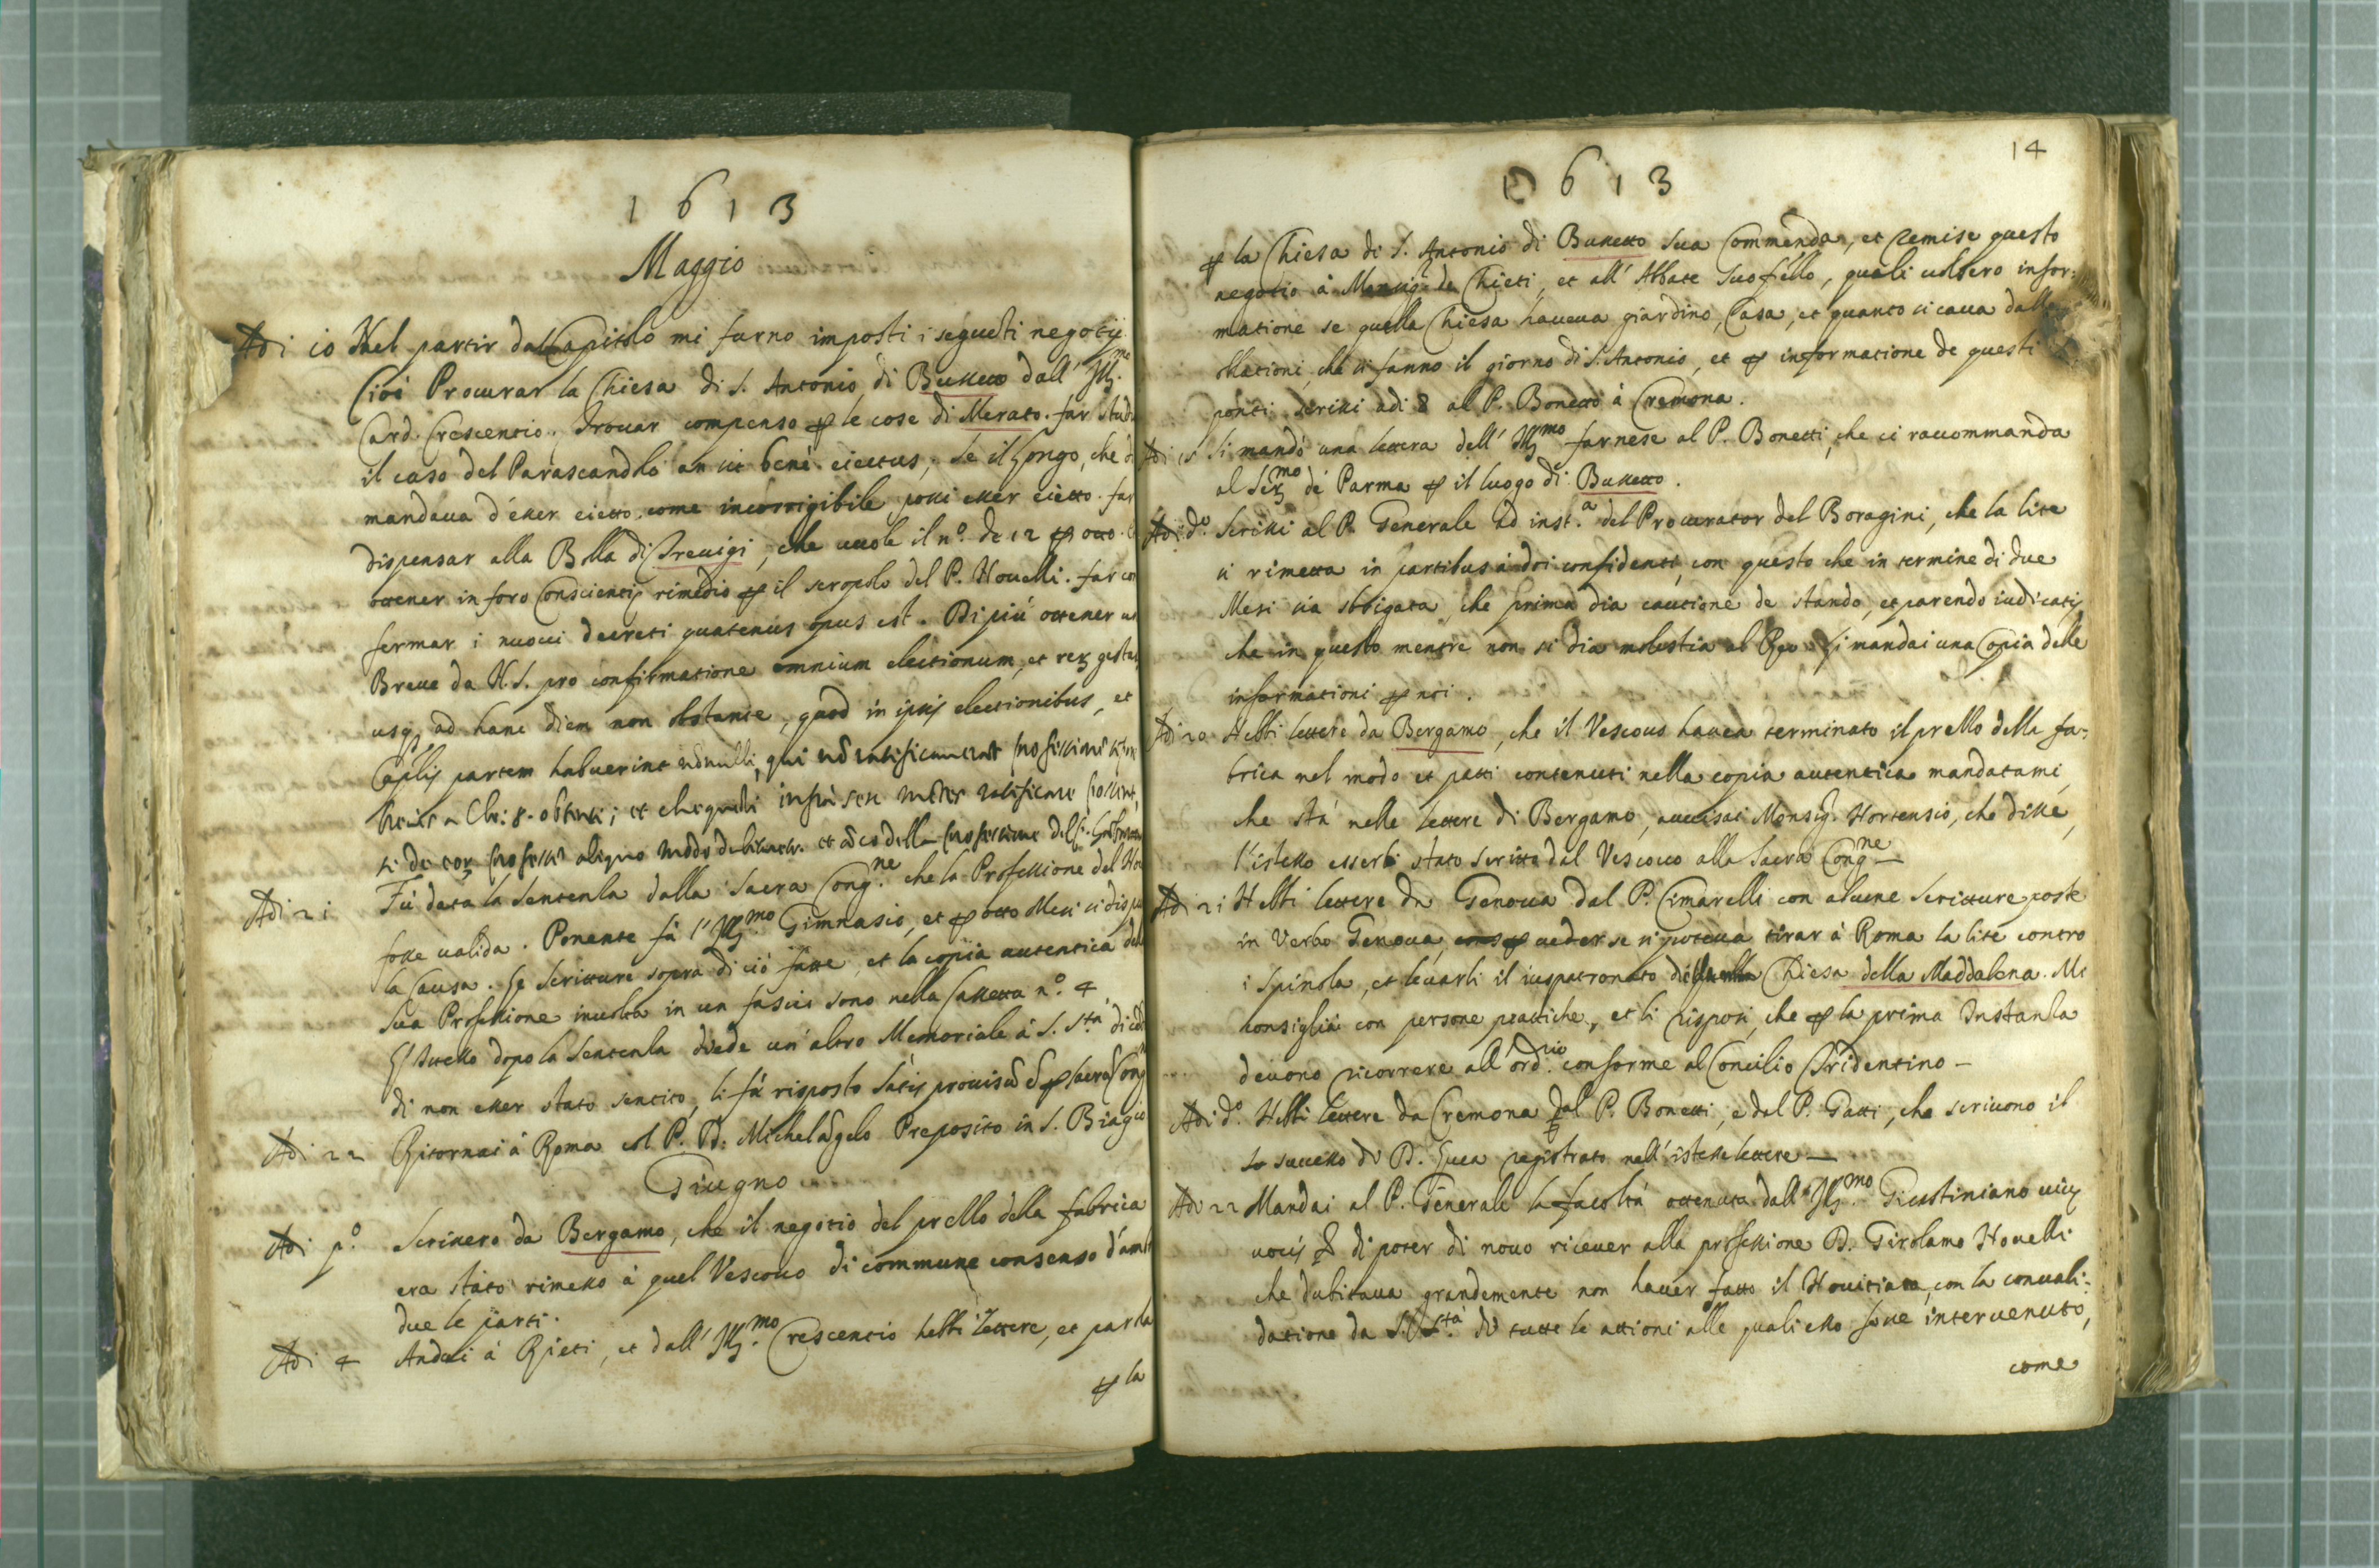 1613
Maggio
Adi 10 Nel partir dal Capitolo mi furno imposti i segueti negotij
Cioè Procurar la Chiesa di S. Antonio di Busseto dall' Ill.mo
Card. Crescentio. Trovar compenso p le cose di Merato. far stud
il caso del Parascandolo an sit benè eiectus, se il Longo, che
mandava d'esser eietto come incorrigibile possi esser eietto. far
dispensar alla Bolla di Trevigi, che vuole il n.o de 12 p otto.
ottener in foro conscientiȩ rimedio p il scropolo del P. Novelli. far con
fermar i nuovi decreti quatenus opus est. Di più ottener un
Breve da N.S. pro confirmatione omnium electionum, et rerȝ gestarȝ
usqȝ ad hanc diem non obstante, quod in ipsis electionibus, et
Caplis partem habuerint nonnulli, qui nō ratificaverat professionē
Clem: 8. obtenti; et che quelli infra sex menses ratificare possint,
de eorȝ professione aliquo modo dubitantes. et dico della professione del
Adi 21 Fù data la sentenza dalla Sacra Cong.ne che la Professione del
fosse valida. Ponente fù l'Ill.mo Gimnasio, et p otto Mesi si disp
la Causa. Le scritture sopra di ciò fatte, et la copia autentica del
sua Professione involta in un fascio sono nella Cassetta n.o 4
L'istesso dopo la sentenza diede un' altro Memoriale à S. S.tà dicēd
di non esser stato sentito, li fù risposto satis provisū ē p sacrā Cong
Adi 22 Ritornai à Roma col P. D: Michelāgelo Preposito in S. Biagio
Giugno
Adi p.o Scrissero da Bergamo, che il negotio del prezzo della fabrica
era stato rimesso à quel Vescovo di commune consenso d'amb
due le parti.
Adi 4 Andai à Rieti, et dall' Ill.mo Crescentio hebbi lettere, et parla
p la
14
1613
p la Chiesa di S. Antonio di Busseto sua Commenda, et remise questo
negotio à Monsig. de Chieti, et all' Abbate suo f'ello, quali volsero infor:
matione se quella Chiesa haveva giardino, Casa, et quanto si cava dalle
oblationi, che si fanno il giorno di S. Antonio, et p informatione de questi
ponti scrissi adi 8 al P. Bonetti à Cremona.
Adi 15 Si mandò una lettera dell' Ill.mo farnese al P. Bonetti, che ci raccommanda
al Ser.mo de Parma p il luogo di Busseto.
Adi d.o Scrissi al P. Generale ad inst.a del Procurator del Boragini, che la lite
si rimetta in partibus à doi confidenti, con questo che in termine di due
Mesi sia sbrigata, che prima dia cautione de stando, et parendo iudicatis
che in questo mentre non si dia molestia al Reo. Li mandai una Copia delle
informationi p noi.
Adi 20 Hebbi lettere da Bergamo, che il Vescovo havea terminato il prezzo della fa:
brica nel modo et patti contenuti nella copia autentica mandatami,
che stà nelle lettere di Bergamo, avvisai Monsig.r Hortensio, che disse,
l'istesso esserli stato scritto dal Vescovo alla Sacra Cong.ne —
Adi 21 Hebbi lettere da Genova dal P. Cimarelli con alcune scritture poste
in Verbo Genova, p veder se si poteva tirar à Roma la lite contro
i Spinola, et levarli il iuspatronato di quella Chiesa della Maddalena. Mi
consigliai con persone prattiche, et li risposi, che p la prima Instanza
devono ricorrere all' ord.rio conforme al Concilio Tridentino —
Adi d.o Hebbi lettere da Cremona dal P. Bonetti, e dal P. Gatti, che scrivono il
successo di D. Luca registrato nell' istesse lettere —
Adi 22 Mandai al P. Generale la facoltà ottenuta dall' Ill.mo Giustiniano vivȩ
vocis di poter di novo ricever alla professione D. Girolamo Novelli
che dubitava grandemente non haver fatto il Novitiato, con la convali:
datione da S. S.tà di tutte le attioni alle quali esso fosse intervenuto,
come